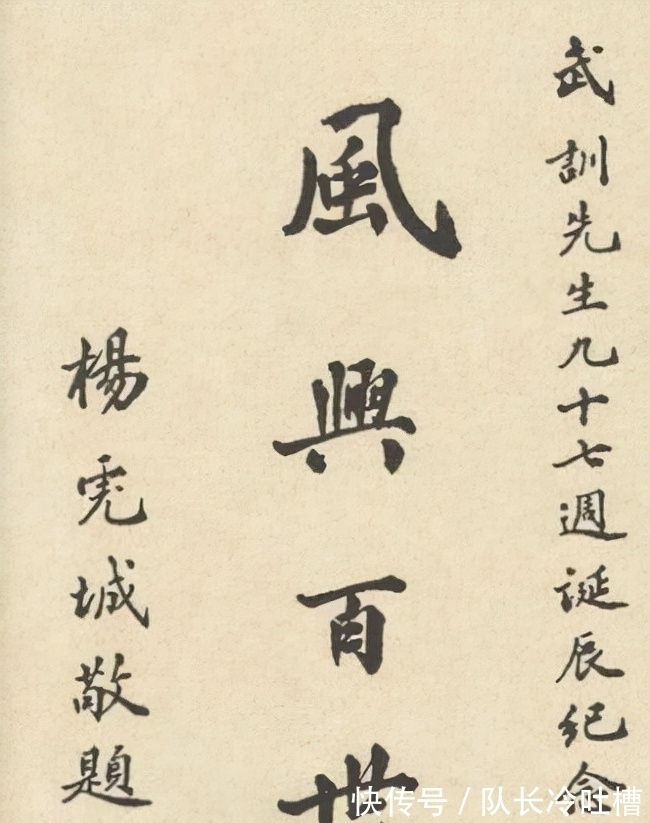 武訓先生九十七週誕辰纪念
風興百世
楊虎城敬題
快传号 / 队长冷吐槽